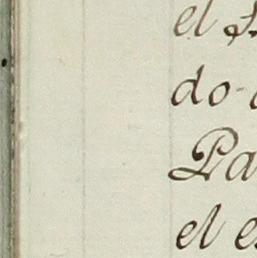 el
do
Pa
el e